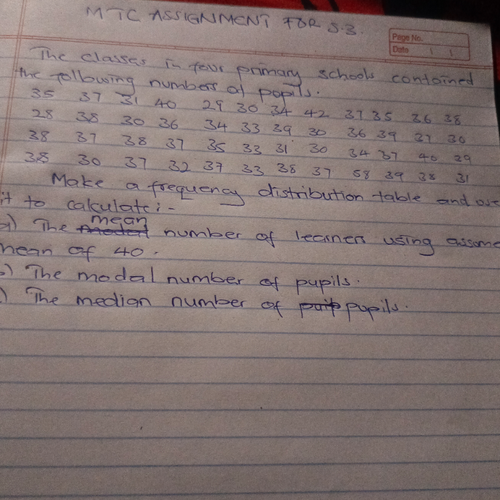 MTC ASSIGNMENT FOR S.3.
Page No.
Date
The classes in four primary schools contained
the following numbers of pupils.
35 37 31 40 29 30 34 42 37 35 36 38
28 38 30 36 34 33 39 30 36 39 37 30
38 37 38 37 35 33 31 30 34 37 40 29
38 30 37 32 37 33 38 37 38 39 38 31
Make a frequency distribution table and use
it to calculate:-
mean
The number of learners using assume
mean of 40.
The modal number of pupils.
The median number of pupils.